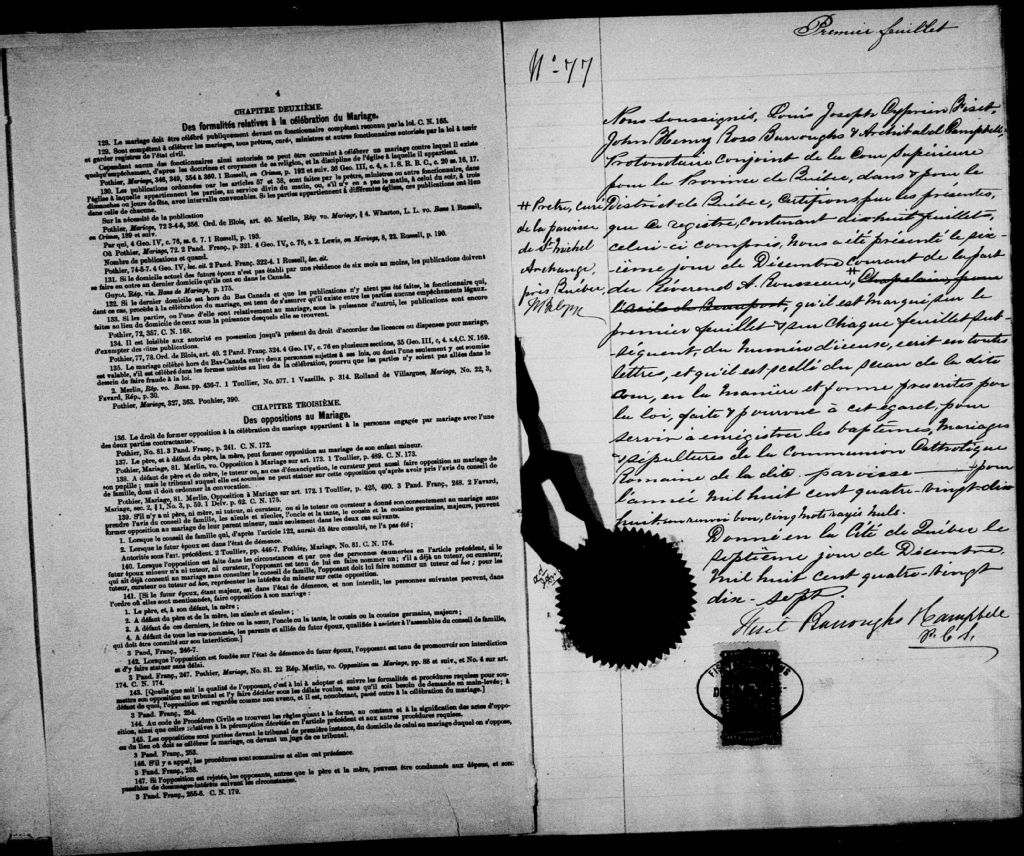 4
CHAPITRE DEUXIÈME.
Des formalités relatives à la célébration du Mariage.
128. Le mariage doit être célébré publiquement devant un fonctionnaire compétent reconnu par la loi. C. N. 165.
129. Sont compétents à célébrer les mariages, tous prêtres, curés, ministres et autres fonctionnaires autorisés par la loi à tenir
et garder registres de l'état civil.
Cependant aucun des fonctionnaires ainsi autorisés ne peut être contraint à célébrer un mariage contre lequel il existe
quelqu'empêchement, d'après les doctrines et croyances de sa religion, et la discipline de l'église à laquelle il appartient.
130. Les publications ordonnées par les articles 57 et 58, sont faites par le prêtre, ministre ou autre fonctionnaire, dans
l'église à laquelle appartiennent les parties, au service divin du matin, ou, s'il n'y en a pas le matin, à celui du soir, à trois
dimanches ou jours de fête, avec intervalle convenable. Si les parties appartiennent à différentes églises, ces publications ont lieu
dans celle de chacune.
Sur la nécessité de la publication
Nombre de publications et quand.
131. Si le domicile actuel des futurs époux n'est pas établi par une résidence de six mois au moins, les publications doivent
se faire en outre au dernier domicile qu'ils ont eu dans le Canada.
132. Si le dernier domicile est hors du Bas Canada et que les publications n'y aient pas été faites, le fonctionnaire qui,
dans ce cas, procède à la célébration du mariage, est tenu de s'assurer qu'il existe entre les parties aucuns empêchements légaux.
133. Si les parties, ou l'une d'elles sont relativement au mariage, sous la puissance d'autrui, les publications sont encore
faites au lieu du domicile de ceux sous la puissance desquels elle se trouvent.
Pothier, 72, 357. C. N. 168.
134. Il est loisible aux autorité en possession jusqu'à présent du droit d'accorder des licences ou dispenses pour mariage,
d'exempter des dites publications.
135. Le mariage célébré hors du Bas-Canada entre deux personnes sujettes à ses lois, ou dont l'une seulement y est soumise
est valable, s'il est célébré dans les formes usitées au lieu de la célébration, pourvu que les parties n'y soient pas allées dans le
dessein de faire fraude à la loi.
2. Merlin, Rép. vo. Bans. pp. 436-7. 1 Toullier, No. 577. 1 Vazeille, p. 314. Rolland de Villargues, Mariage, No. 22, 3,
Favard, Rép., p. 30.
Pothier, Mariage, 327, 363. Pouhier, 390.
CHAPITRE TROISIÈME.
Des oppositions au Mariage.
136. Le droit de former opposition à la célébration du mariage appartient à la personne engagée par mariage avec l'une
des deux parties contractantes.
Pothier, No. 81. 3 Pand. Franç., p. 241. C. N. 172.
137. Le père, et à défaut du père, la mère, peut former opposition au mariage de son enfant mineur.
Pothier, Mariage, 81. Merlin, vo. Opposition à Mariage sur art. 173. 1 Toullier, p. 489. C. N. 173.
138. A défaut de père et de mère, le tuteur ou, au cas d'émancipation, le curateur peut aussi faire opposition au mariage de
son pupille; mais le tribunal auquel elle est soumise ne peut statuer sur cette opposition qu'après avoir pris l'avis du conseil de
famille, dont il doit ordonner la convocation.
Pothier, Mariage, 81. Merlin, Opposition à Mariage sur art. 172. 1 Toullier, p. 425, 490. 3 Pand. Franç., 248. 2 Favard,
Mariage, sec. 2, § 1, No. 3, p. 59. 1 Delv. p. 62. C. N. 175.
139. S'il n'y a ni père, ni mère, ni tuteur, ni curateur, ou si le tuteur ou curateur a donné son consentement au mariage sans
prendre l'avis du conseil de famille, les aïeuls et aïeules, l'oncle et la tante, le cousin et la cousine germains, majeurs, peuvent
former opposition au mariage de leur parent mineur, mais seulement dans les deux cas suivants:
1. Lorsque le conseil de famille qui, d'après l'article 122, aurait dû être consulté, ne l'a pas été;
2. Lorsque le futur époux est dans l'état de démence.
Autorités sous l'art. précédent. 2 Toullier, pp. 446-7. Pothier, Mariage, No. 81. C. N. 174.
140. Lorsque l'opposition est faite dans les circonstances et par une des personnes énumérées en l'article précédent, si le
futur époux mineur n'a ni tuteur, ni curateur, l'opposant est tenu de lui en faire nommer un; s'il a déjà un tuteur, ou curateur,
qui ait déjà consenti au mariage sans consulter le conseil de famille, l'opposant doit lui faire nommer un tuteur ad hoc; pour les
tuteur, curateur ou tuteur ad hoc, représenter les intérêts du mineur sur cette opposition.
141. [Si le futur époux, étant majeur, est dans l'état de démence, et non interdit, les personnes suivantes peuvent, dans
l'ordre où elles sont mentionnées, faire opposition à son mariage:
1. Le père, et, à son défaut, la mère;
2. A défaut du père et de la mère, les aïeuls et aïeules;
3. A défaut de ces derniers, le frère ou la sœur, l'oncle ou la tante, le cousin ou la cousine germains, majeurs;
4. A défaut de tous les sus-nommés, les parents et alliés du futur époux, qualifiés à assister à l'assemblée du conseil de famille,
qui doit être consulté sur son interdiction.]
3 Pand. Franç., 246-7.
142. Lorsque l'opposition est fondée sur l'état de démence du futur époux, l'opposant est tenu de promouvoir son interdiction
et d'y faire statuer sans délai.
3 Pand. Franç., 247. Pothier, Mariage, No. 81. 22 Rép. Merlin, vo. Opposition au Mariage, pp. 88 et suiv., et No. 4 sur art.
174. C. N. 174.
143. [Quelle que soit la qualité de l'opposant, c'est à lui à adopter et suivre les formalités et procédures requises pour sou-
mettre son opposition au tribunal et l'y faire décider sous les délais voulus, sans qu'il soit besoin de demande en main-levée; à
défaut de quoi, l'opposition est regardée comme non avenue, et il est, nonobstant, passé outre à la célébration du mariage.]
3 Pand. Franç., 254.
144. Au code de Procédure Civile se trouvent les règles quant à la forme, au contenu et à la signification des actes d'oppo-
sition, ainsi que celles relatives à la péremption décrétée en l'article précédent et aux autres procédures requises.
145. Les oppositions sont portées devant le tribunal de première instance, du domicile de celui au mariage duquel on s'oppose,
ou du lieu où doit se célébrer le mariage, ou devant un juge de ce tribunal.
3 Pand. Franç., 253.
146. S'il y a appel, les procédures sont sommaires et elles ont préséance.
3 Pand. Franç., 253.
147. Si l'opposition est rejetée, les opposants, autres que le père et la mère, peuvent être condamnés aux dépens, et sont
passibles de dommages-intérêts suivant les circonstances.
3 Pand. Franç., 255-6. C. N. 179.
Premier feuillet
No. 77
Nous soussignés, Louis Joseph Cyprien Fiset,
John Henry Ross Burroughs & Archibald Campbell,
Protonotaire conjoint de la Cour Supérieure
pour la Province de Québec, dans & pour le
District de Québec, Certifions par les présentes,
que ce registre, contenant dix huit feuillets,
celui-ci compris, nous a été présenté le six-
ième jour de Décembre courant de la part
du Révérend A. Rousseau, # Chapelain, pour
l'asile de Beauport, qu'il est marqué sur le
premier feuillet & sur chaque feuillet sub-
séquent, du numéro d'icense, écrit en toutes
lettres, et qu'il est scellé du sceau de la dite
Cour, en la manière et forme prescrites par
la loi, faite & pourvue à cet égard, pour
servir à enrégistrer les baptêmes, mariages
& sépultures de la Communion Catholique
Romaine de la dite paroisse pour
l'année mil huit cent quatre-vingt dix
huit un renvoi bon, cinq mots rayés nuls.
Donné en la Cité de Québec le
septième jour de Décembre
mil huit cent quatre-vingt
dix-sept.
Fiset Burroughs & Campbell
P. C. S.
# Prêtre, curé
de la paroisse
de St. Michel
Archange,
près Québec,